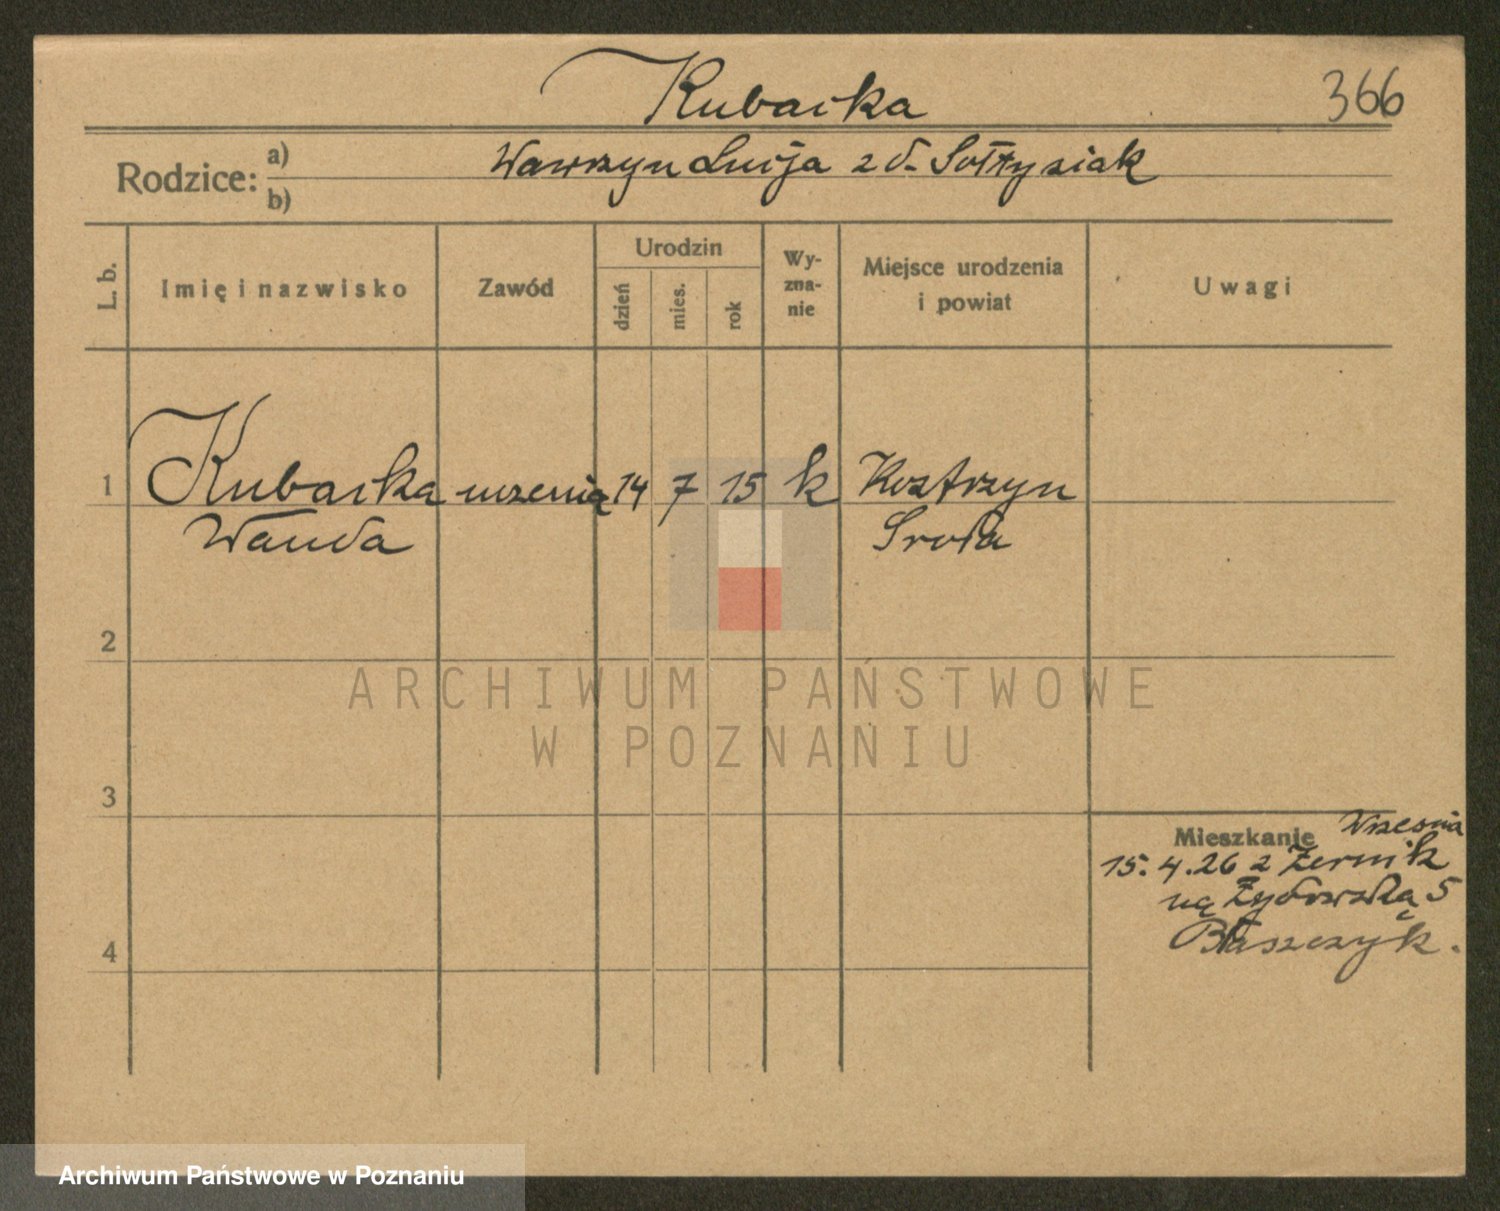 Kubacka
366
Rodzice: a)
Wawrzyn Lucja z d. Sołtysiak
b)
L. b.
Imię i nazwisko
Zawód
Urodzin
dzień
mies.
rok
Wy-
zna-
nie
Miejsce urodzenia
i powiat
Uwagi
1
Kubacka uczenica 14 7 15 k Kostrzyn
Wanda Sroda
2
ARCHIWUM PAŃSTWOWE
W POZNANIU
3
Mieszkanie Wrzesnia
15. 4. 26 z Zernik
na Żydowską 5
Błaszczyk.
4
Archiwum Państwowe w Poznaniu